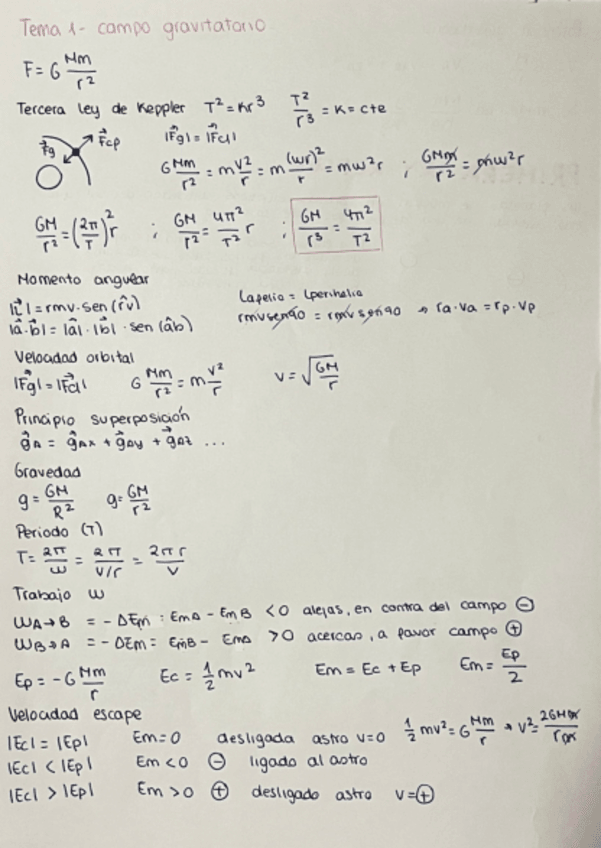 Tema 1- campo gravitatorio
F = G Mm/r²
Tercera ley de Keppler T² = Kr³ T²/r³ = K = cte
F⃗g F⃗cp |F⃗g| = |F⃗c|
G Mm/r² = m v²/r = m (wr)²/r = mw²r ; GMm/r² = mw²r
GM/r² = (2π/T)² r ; GM/r² = 4π²/T² r ; GM/r³ = 4π²/T²
Momento angular
|L⃗| = rmv·sen(r̂v) Lafelio = Lperihelio
|a⃗·b⃗| = |a⃗|·|b⃗|·sen(âb) rmvsen90 = rmvsen90 → ra·va = rp·vp
Velocidad orbital
|F⃗g| = |F⃗c| G Mm/r² = m v²/r v = √GM/r
Principio superposición
g⃗A = g⃗Ax + g⃗Ay + g⃗Az ...
Gravedad
g = GM/R² g = GM/r²
Periodo (T)
T = 2π/w = 2π/v/r = 2πr/v
Trabajo w
WA→B = -ΔEm : EmA - EmB < 0 alejas, en contra del campo ⊖
WB→A = -ΔEm = EmB - EmA > 0 acercas, a favor campo ⊕
Ep = -G Mm/r Ec = 1/2 mv² Em = Ec + Ep Em = Ep/2
Velocidad escape
|Ec| = |Ep| Em = 0 desligada astro v=0 1/2 mv² = G Mm/r → v² = 2GMm/rm
|Ec| < |Ep| Em < 0 ⊖ ligado al astro
|Ec| > |Ep| Em > 0 ⊕ desligado astro v=⊕